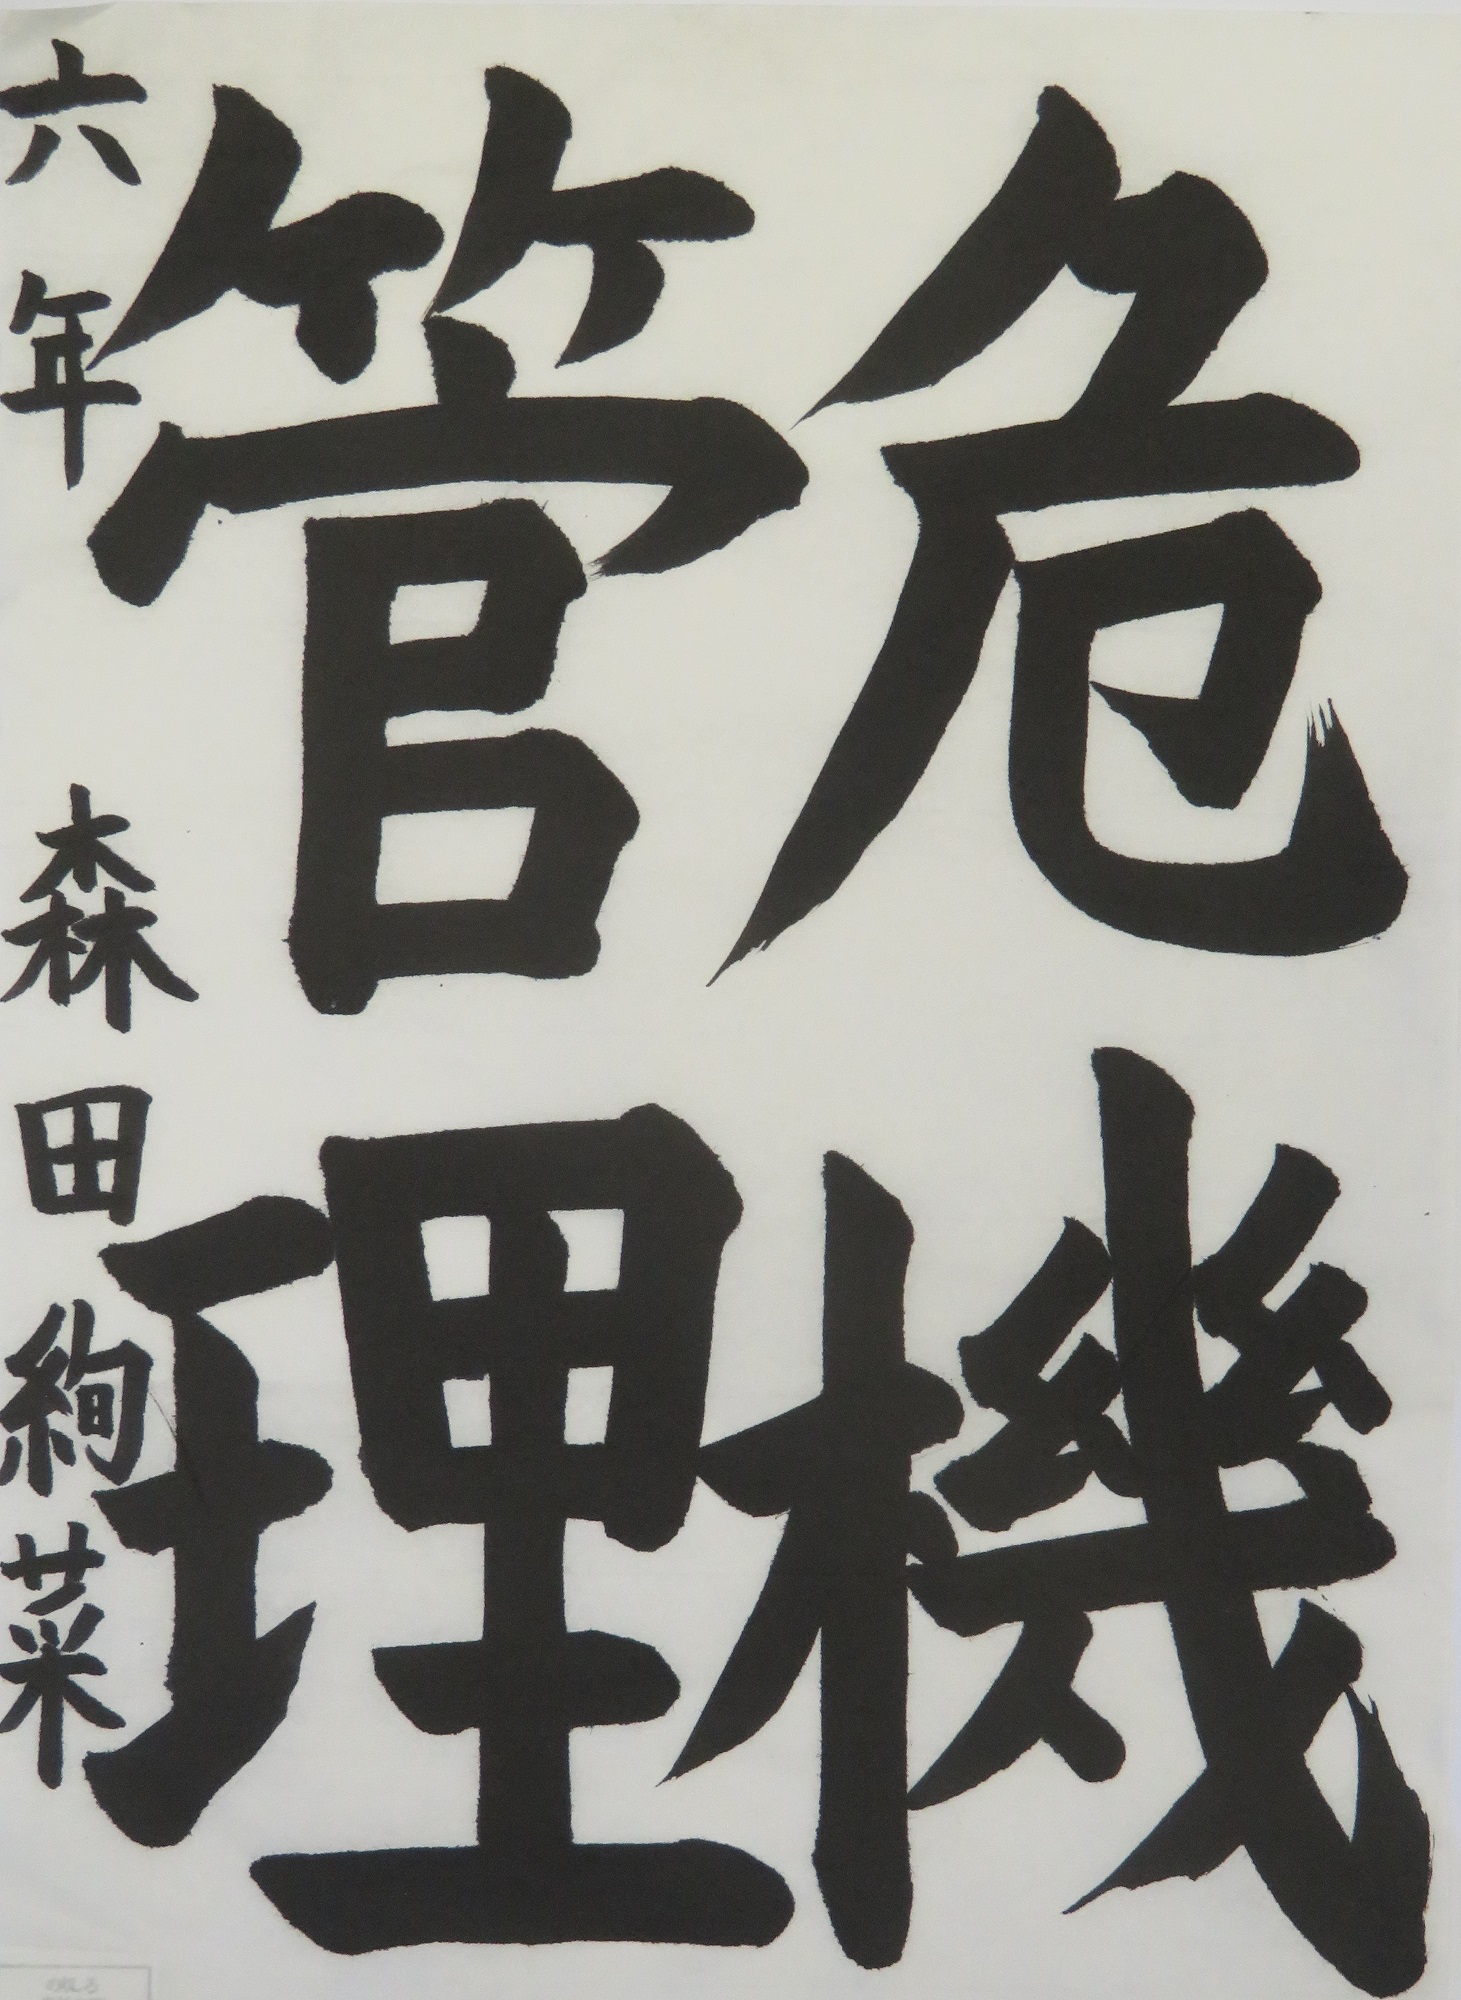 危機
管理
六年 森田絢菜